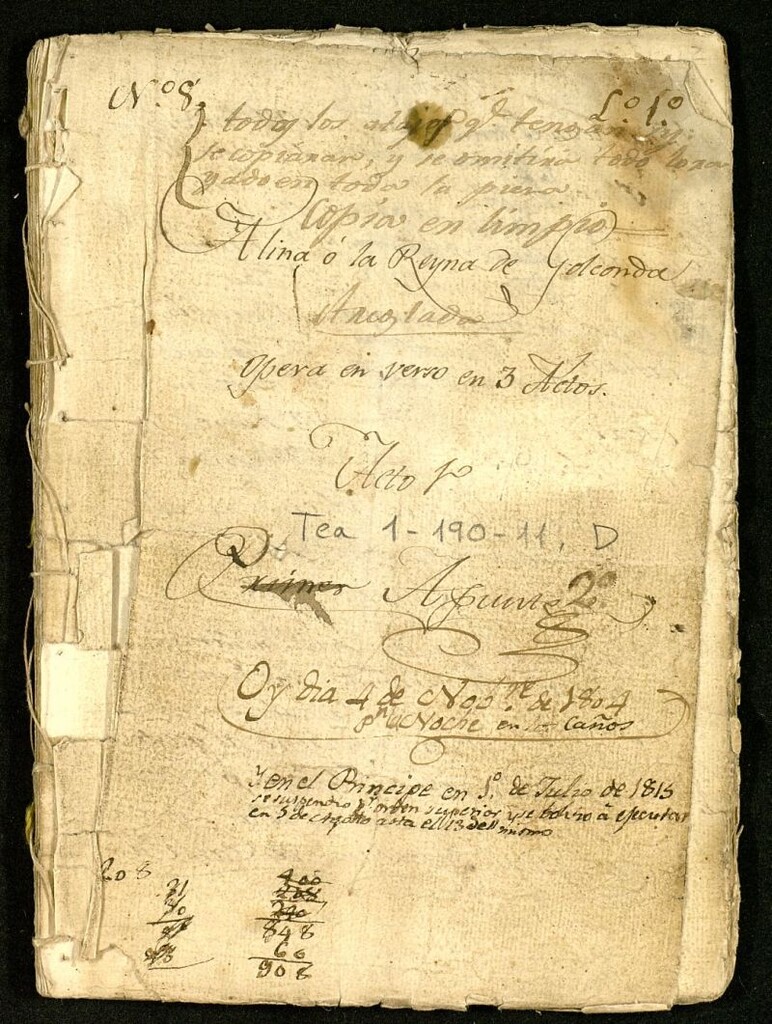 Nº 8,
Lº 1º
todos los atajos qe tengan si
se copiaran, y se omitira todo lo ra
yado en toda la pieza
Copia en limpio
Alina ó la Reyna de Golconda
Arreglada
Opera en verso en 3 Actos.
Acto 1º
Tea 1-190-11, D
Primer Apunte 2º
Oy dia 4 de Nobre de 1804
pr la Noche en los Caños
Y en el Principe en 1º de Julio de 1815
se suspendio pr orden superior y se bolvio â ejecutar
en 5 de Agosto asta el 13 del mismo
208
21
400
208
240
848
66
908